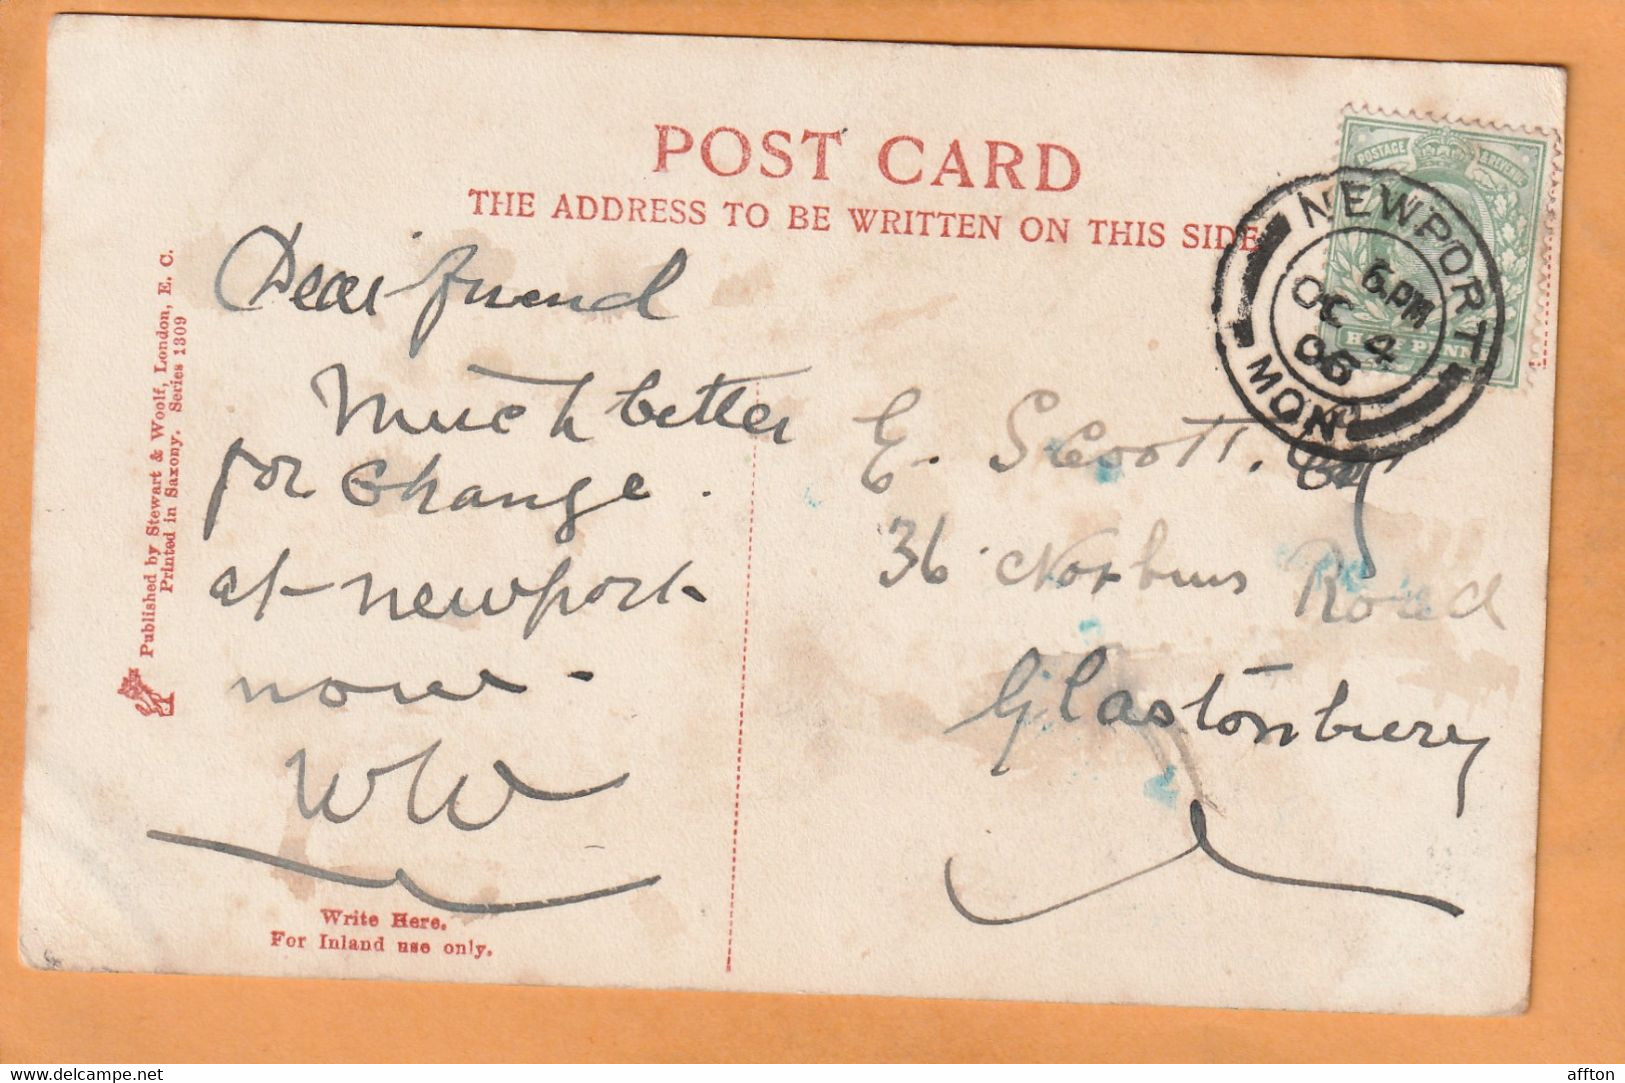 POST CARD
THE ADDRESS TO BE WRITTEN ON THIS SIDE
Published by Stewart & Woolf, London, E. C.
Printed in Saxony. Series 1309
POSTAGE & REVENUE
HALF PENNY
NEWPORT
6.PM
OC 4
06
MON
Dear friend
Much better
for Change.
at Newport
now.
WW
E. Scott. Esq
36 Norbins Road
Glastonbury
Write Here.
For Inland use only.
Delcampe.net
affton